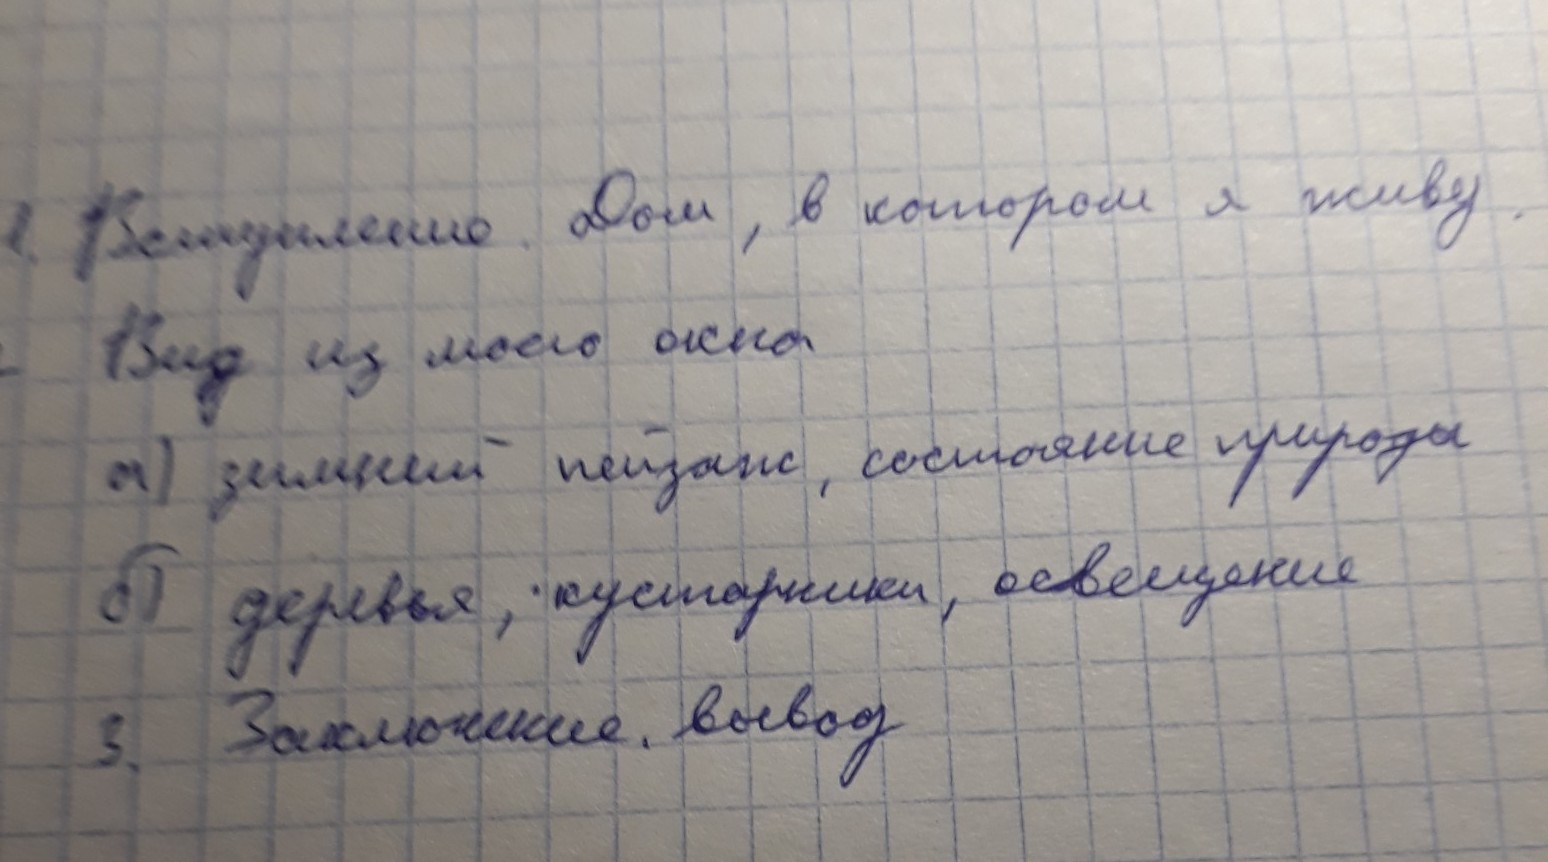 1. Вступление. Дом, в котором я живу.
Вид из моего окна
а) зимний пейзаж, состояние природы
б) деревья, кустарники, освещение
3. Заключение. вывод